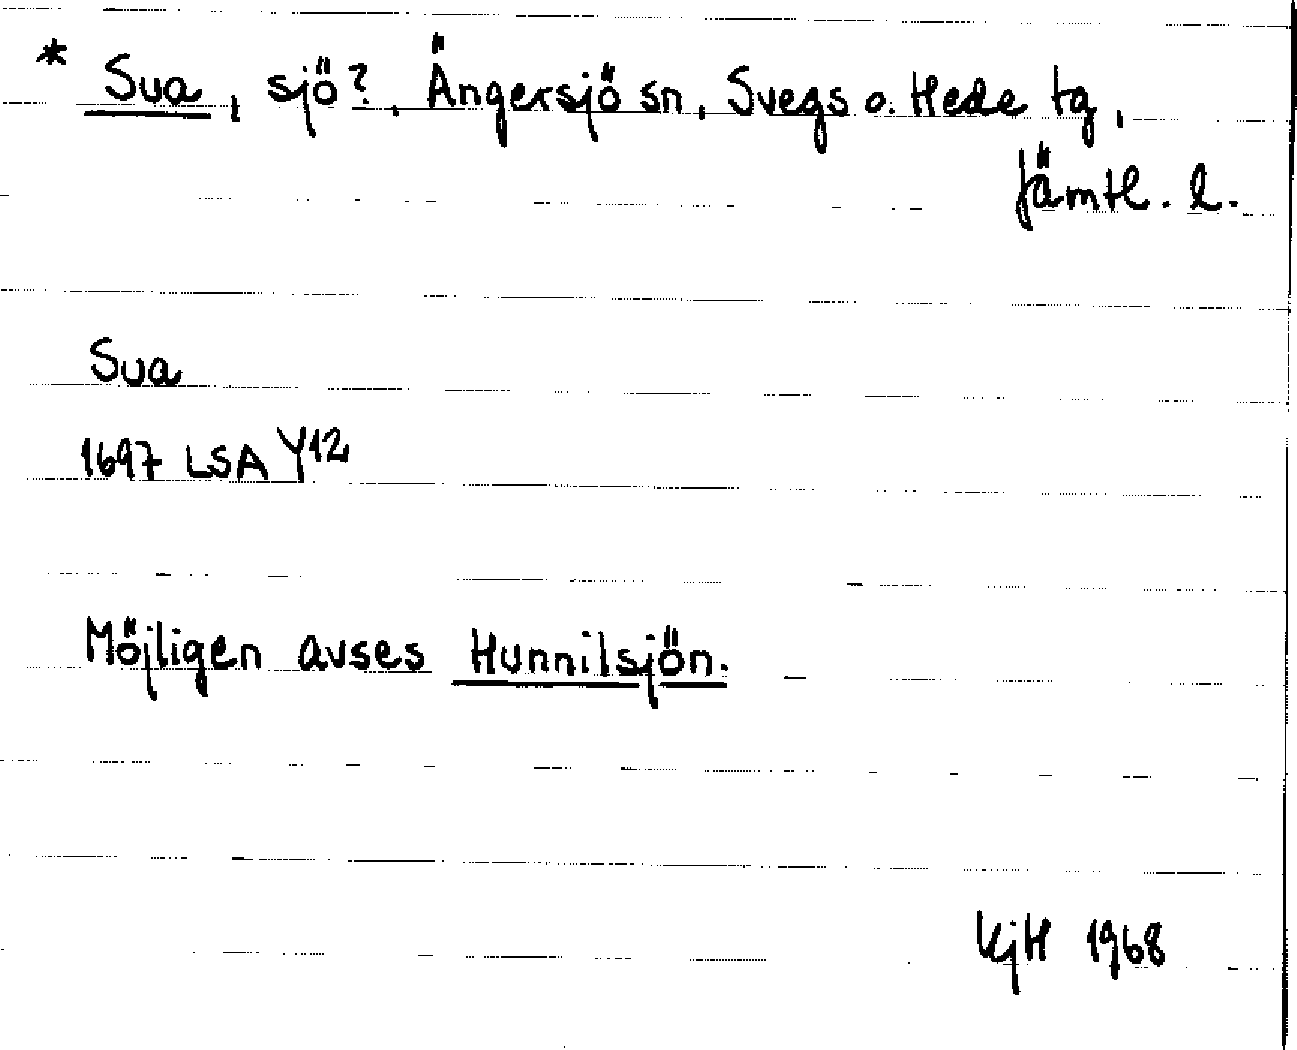 * Sva, sjö?, Ängersjö sn, Svegs o. Hede tg,
Jämtl. l.
Sva
1697 LSA Y12
Möjligen avses Hunnilsjön.
KjH 1968